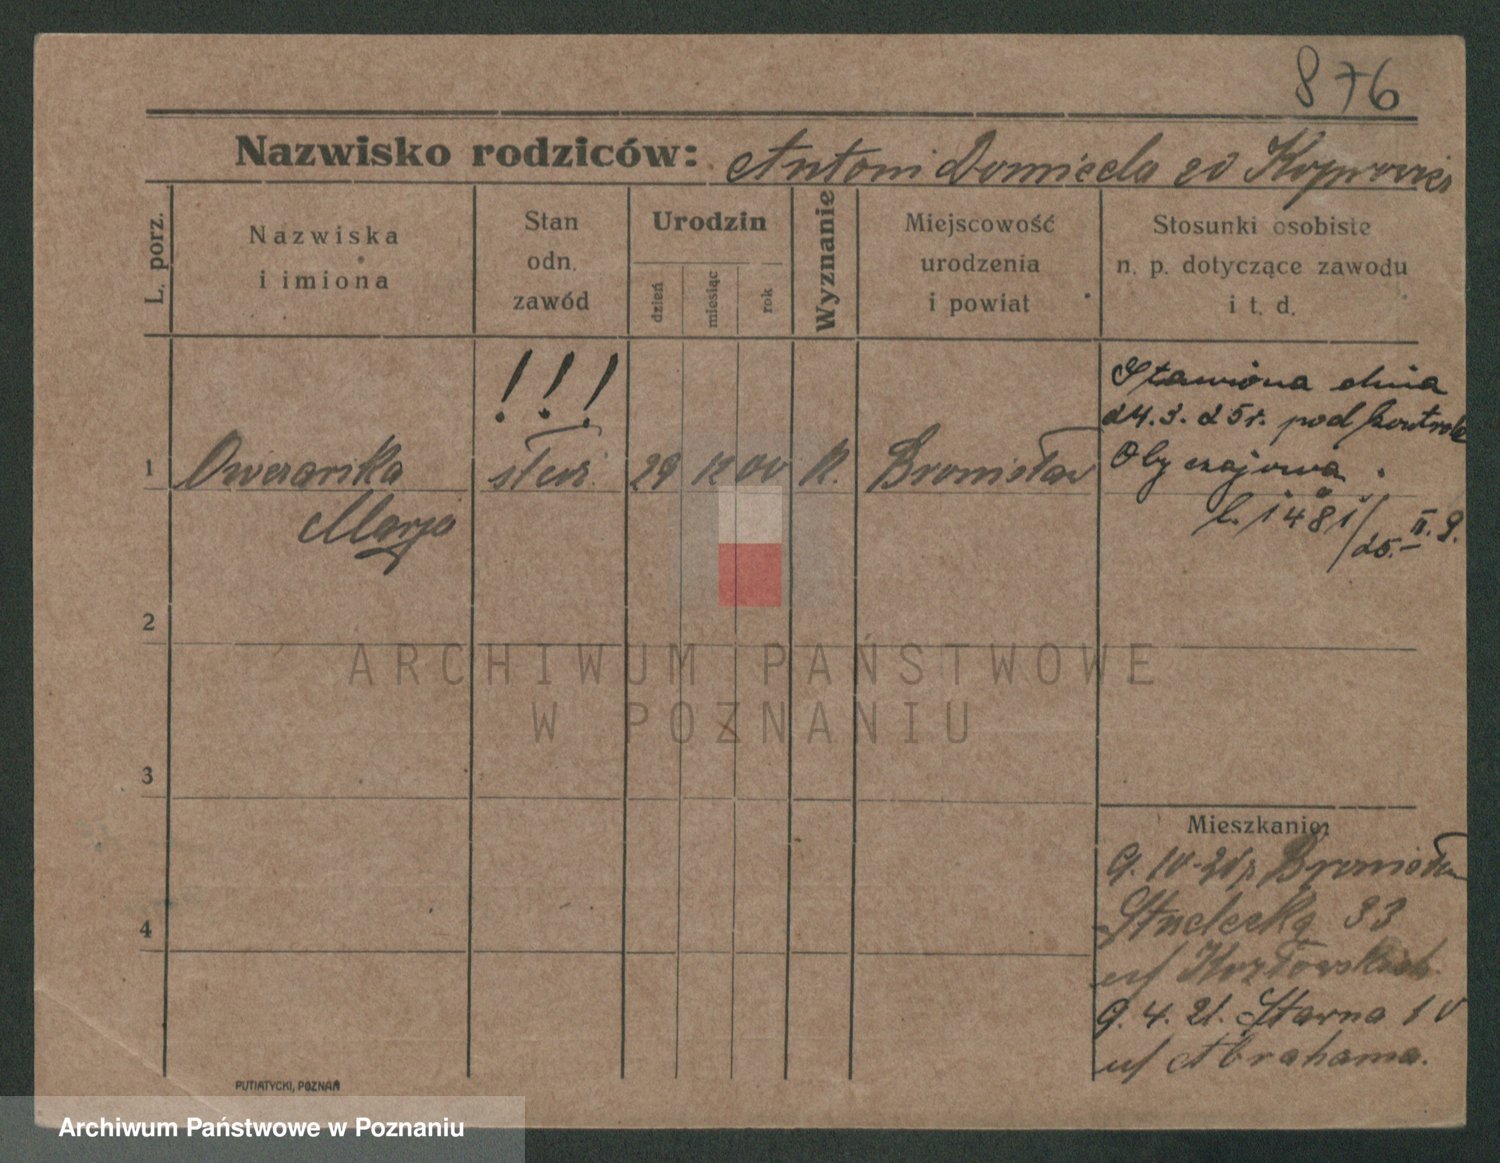 876
Nazwisko rodziców: Antoni Domicela zd
L. porz.
Nazwiska
i imiona
Stan
odn.
zawód
Urodzin
dzień
miesiąc
rok
Wyznanie
Miejscowość
urodzenia
i powiat
Stosunki osobiste
n. p. dotyczące zawodu
i t. d.
!!!
1 Owczarska służ. 29 12 00 K. Bronisław
Marja
Stawiona dnia
24.3.25r. pod kontrolę
Obyczajową.
L. 1481/25.- II. 9.
2
3
4
Mieszkanie:
9. 10-21 z Bronisław
33
u/
9. 4. 21. 10
u/ Abrahama.
PUTIATYCKI, POZNAŃ
ARCHIWUM PAŃSTWOWE
W POZNANIU
Archiwum Państwowe w Poznaniu